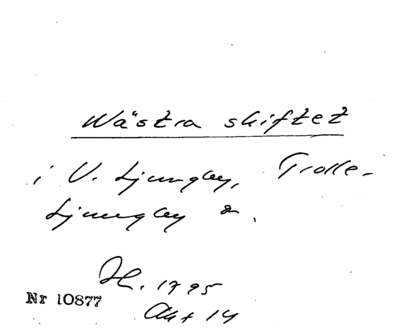 Wästra skiftet
i V. Ljungby, Trolle-
Ljungby s.
H. 1795
Nr 10877
Akt 14